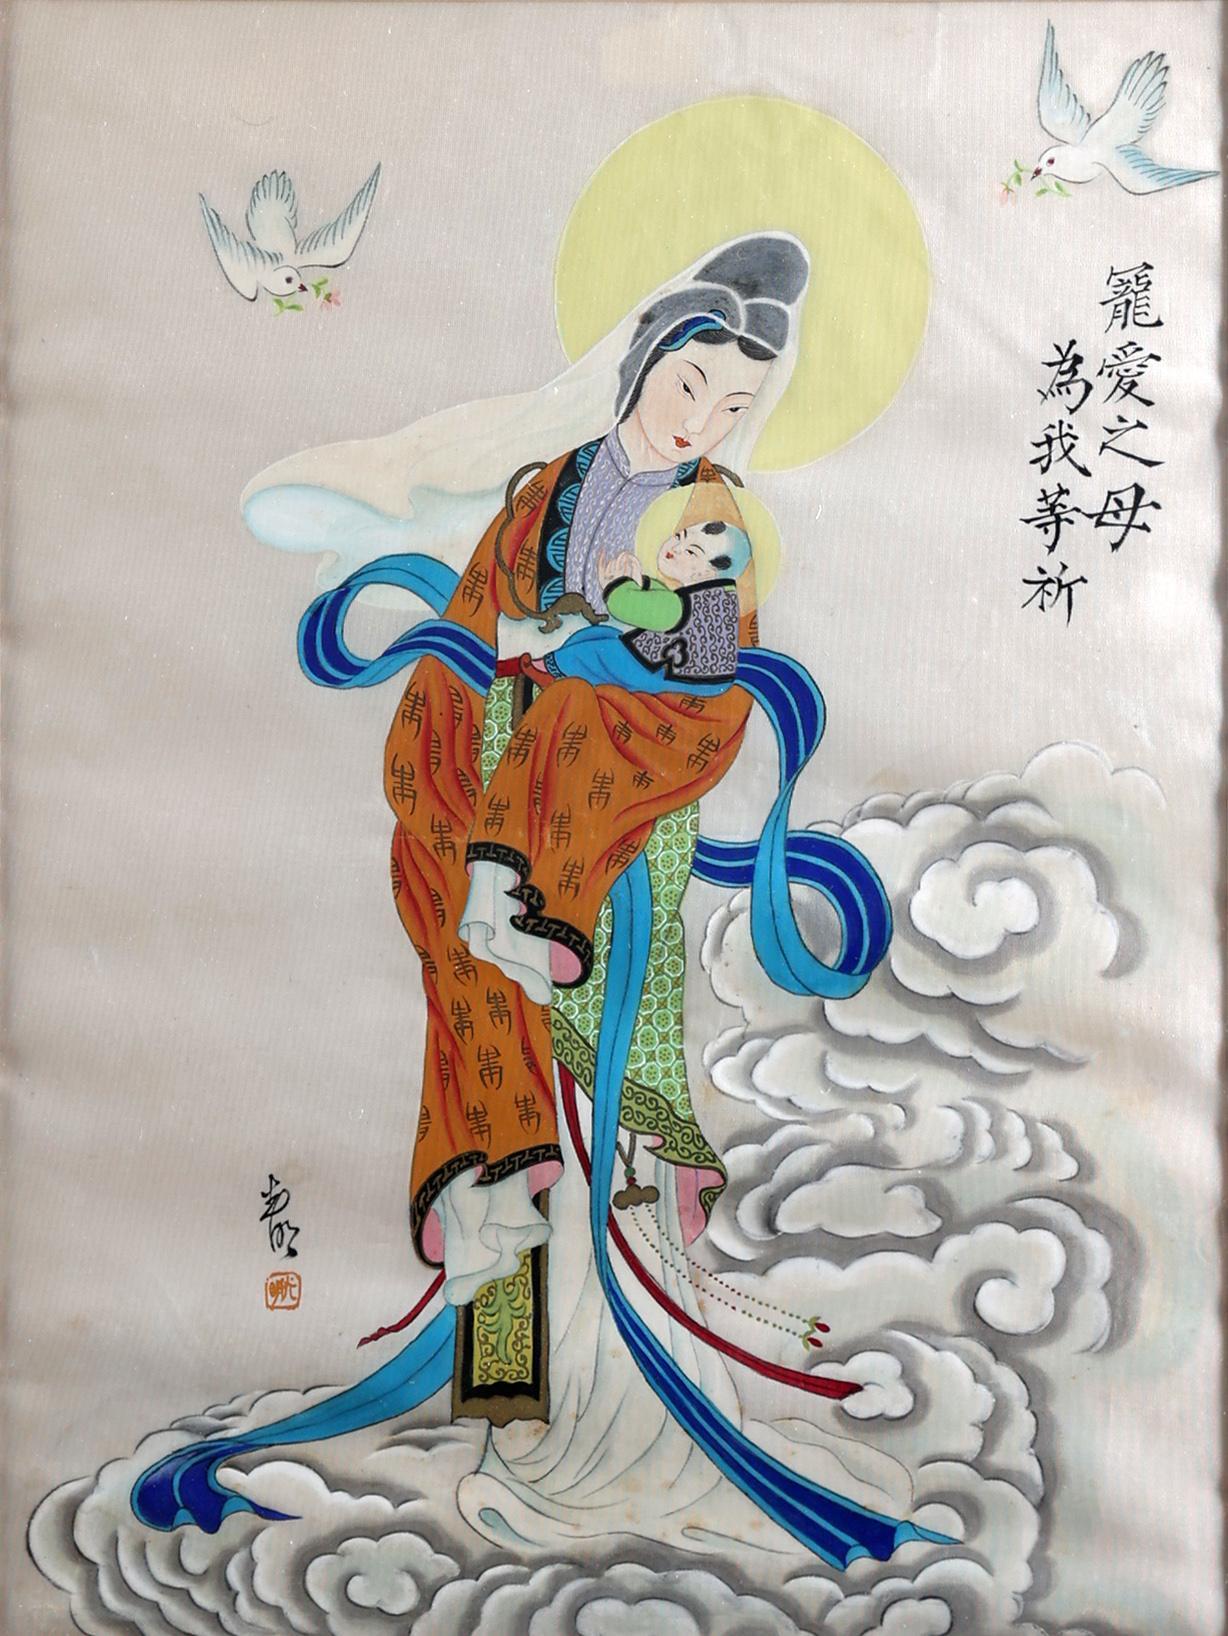 寵愛之母
為我等祈